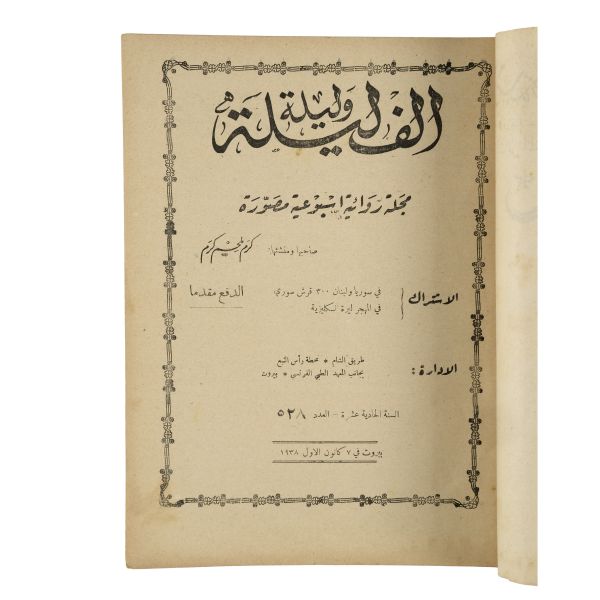 الف ليلة وليلة
مجلة روائية اسبوعية مصورة
صاحبها ومنشئها: كرم ملحم كرم
الاشتراك { في سوريا ولبنان ٣٠٠ قرش سوري
في المهجر ليرة انكليزية
الدفع مقدما
الادارة: طريق الشام * محطة رأس النبع
بجانب المعهد الطبي الفرنسي * بيروت
السنة الحادية عشرة - العدد ٥٢٨
بيروت في ٧ كانون الاول ١٩٣٨